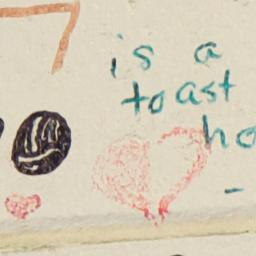 is a
toast
ho
-